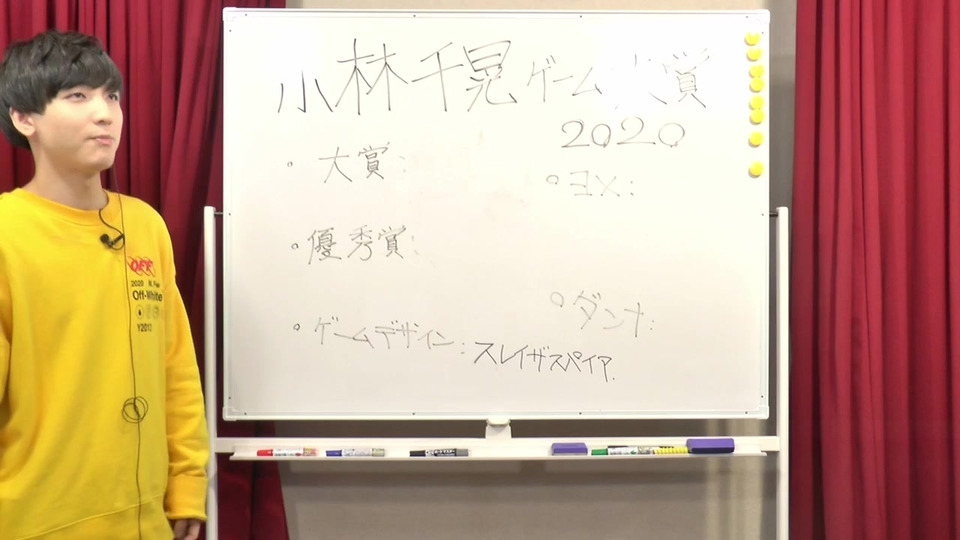 小林千晃ゲーム大賞
2020
・大賞:
○ヨメ:
○優秀賞:
○ダンナ:
○ゲームデザイン:スレイザスペイア.
OFF
2020
Off-White